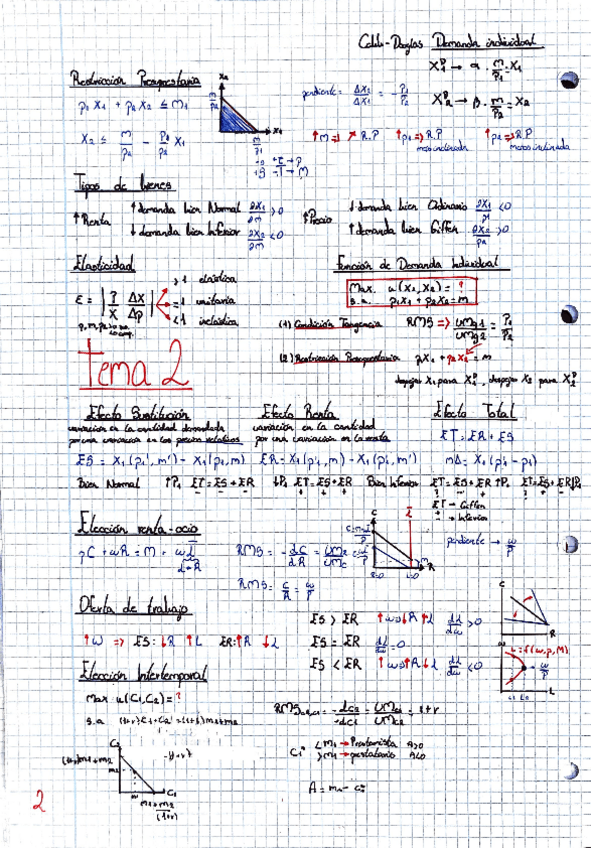 Cobb-Douglas Demanda individual
Restricción Presupuestaria
X₁ᴰ → α · m/p₁ = X₁
p₁ X₁ + p₂ X₂ ≤ m
pendiente = ΔX₂/ΔX₁ = - p₁/p₂
X₂ᴰ → β · m/p₂ = X₂
X₂ ≤ m/p₂ - p₁/p₂ X₁
↑m => ↗ R.P
↑p₁ => R.P
más inclinada
↑p₂ => R.P
menos inclinada
Tipos de bienes
↑Renta
↑demanda bien Normal ∂X₁/∂m > 0
↓demanda bien Inferior ∂X₂/∂m < 0
↑Precio
↓demanda bien Ordinario ∂X₁/p₁ < 0
↑demanda bien Giffen ∂X₂/p₂ > 0
Elasticidad
ε = | P/X ΔX/Δp |
>1 elástica
=1 unitaria
<1 inelástica
Función de Demanda Individual
Max. u(x₁, x₂) = ?
s.a. p₁x₁ + p₂x₂ = m
(1) Condición Tangencia RMS => UMg1/UMg2 = P₁/P₂
(2) Restricción Presupuestaria p₁X₁ + p₂X₂ = m
despejar X₁ para X₁ᴰ, despejar X₂ para X₂ᴰ
tema 2
Efecto Sustitución
variación en la cantidad demandada
por una variación en los precios relativos
ES = X₁(p₁', m') - X₁(p₁, m)
Efecto Renta
variación en la cantidad
por una variación en la renta
ER = X₁(p'₁, m) - X₁(p₁', m')
Efecto Total
ET = ER + ES
mΔ = X₁(p'₁ - p₁)
Bien Normal ↑P₁ ET = ES + ER ↓P₁ ET = ES + ER
Bien Inferior ET = ES + ER ↑P₁ ET = ES + ER ↓P₁
ET + Giffen
- Inferior
Elección renta-ocio
pC + wR = m + wL̄
RMS = - dC/dR = UMR/UMC = w/p
pendiente → w/p
RMS = C/R = w/p
Oferta de trabajo
↑w => ES: ↓R ↑L ER: ↑R ↓L
ES > ER ↑w => ↓R ↑L dL/dw > 0
ES = ER dL/dw = 0
ES < ER ↑w => ↑R ↓L dL/dw < 0
L = f(w, p, M)
Elección Intertemporal
Max u(C₁, C₂) = ?
s.a (1+r)C₁ + C₂ = (1+r)m₁ + m₂
RMS C₂,C₁ = - dC₂/dC₁ = UMC₁/UMC₂ = 1 + r
C₁* < m₁ → Prestamista A > 0
> m₁ → prestatario A < 0
A = m₁ - C₁
2